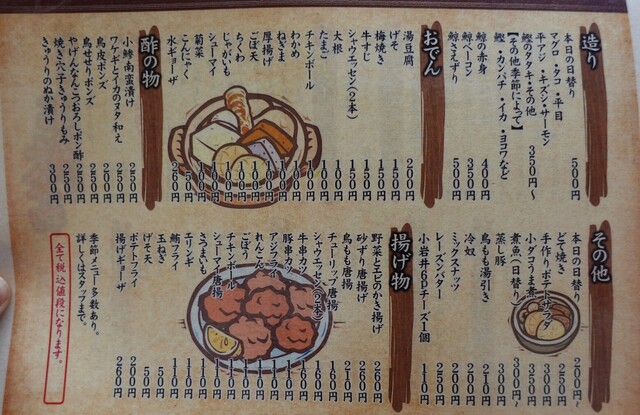 造り
本日の日替り 500円
マグロ・タコ・平目
平アジ・キズシ・サーモン
鰹のタタキ・その他 350円〜
【その他季節によって】
鰹・カンパチ・イカ・ヨコワなど
鯨の赤身 400円
鯨ベーコン 350円
鯨さえずり 500円
おでん
湯豆腐 200円
げそ 150円
梅焼き 150円
牛すじ 150円
シャウエッセン(2本) 150円
大根 100円
たまご 100円
チキンボール 100円
わかめ
ねぎま
厚揚げ
ごぼ天
ちくわ
じゃがいも
シューマイ 100円
菊菜
こんにゃく 50円
水ギョーザ 260円
酢の物
小鯵南蛮漬け 250円
ワケギとイカのヌタ和え 250円
鳥皮ポンズ 200円
鳥せりポンズ 250円
やげんなんこつおろしポン酢 250円
焼き穴子きゅうりもみ 250円
きゅうりのぬか漬け 300円
その他
本日の日替り 200円〜
どて焼き
手作りポテトサラダ
小タマうま煮
煮魚(日替り) 300円〜
蒸し豚 300円
鳥もも湯引き 210円
冷奴 200円
ミックスナッツ 200円
レーズンバター 250円
小岩井6Pチーズ1個 110円
揚げ物
野菜とエビのかき揚げ 260円
砂ずり唐揚げ 260円
鳥もも唐揚げ 210円
チューリップ唐揚 160円
シャウエッセン(2本) 160円
牛串カツ
豚串カツ
アジフライ
れんこん
ごぼう
チキンボール
シューマイ唐揚
さつまいも
エリンギ 110円
鮪フライ 110円
玉ねぎ 50円
げそ天
ポテトフライ
揚げギョーザ 260円
季節メニュー多数あり。
詳しくはスタッフまで。
全て税込値段になります。